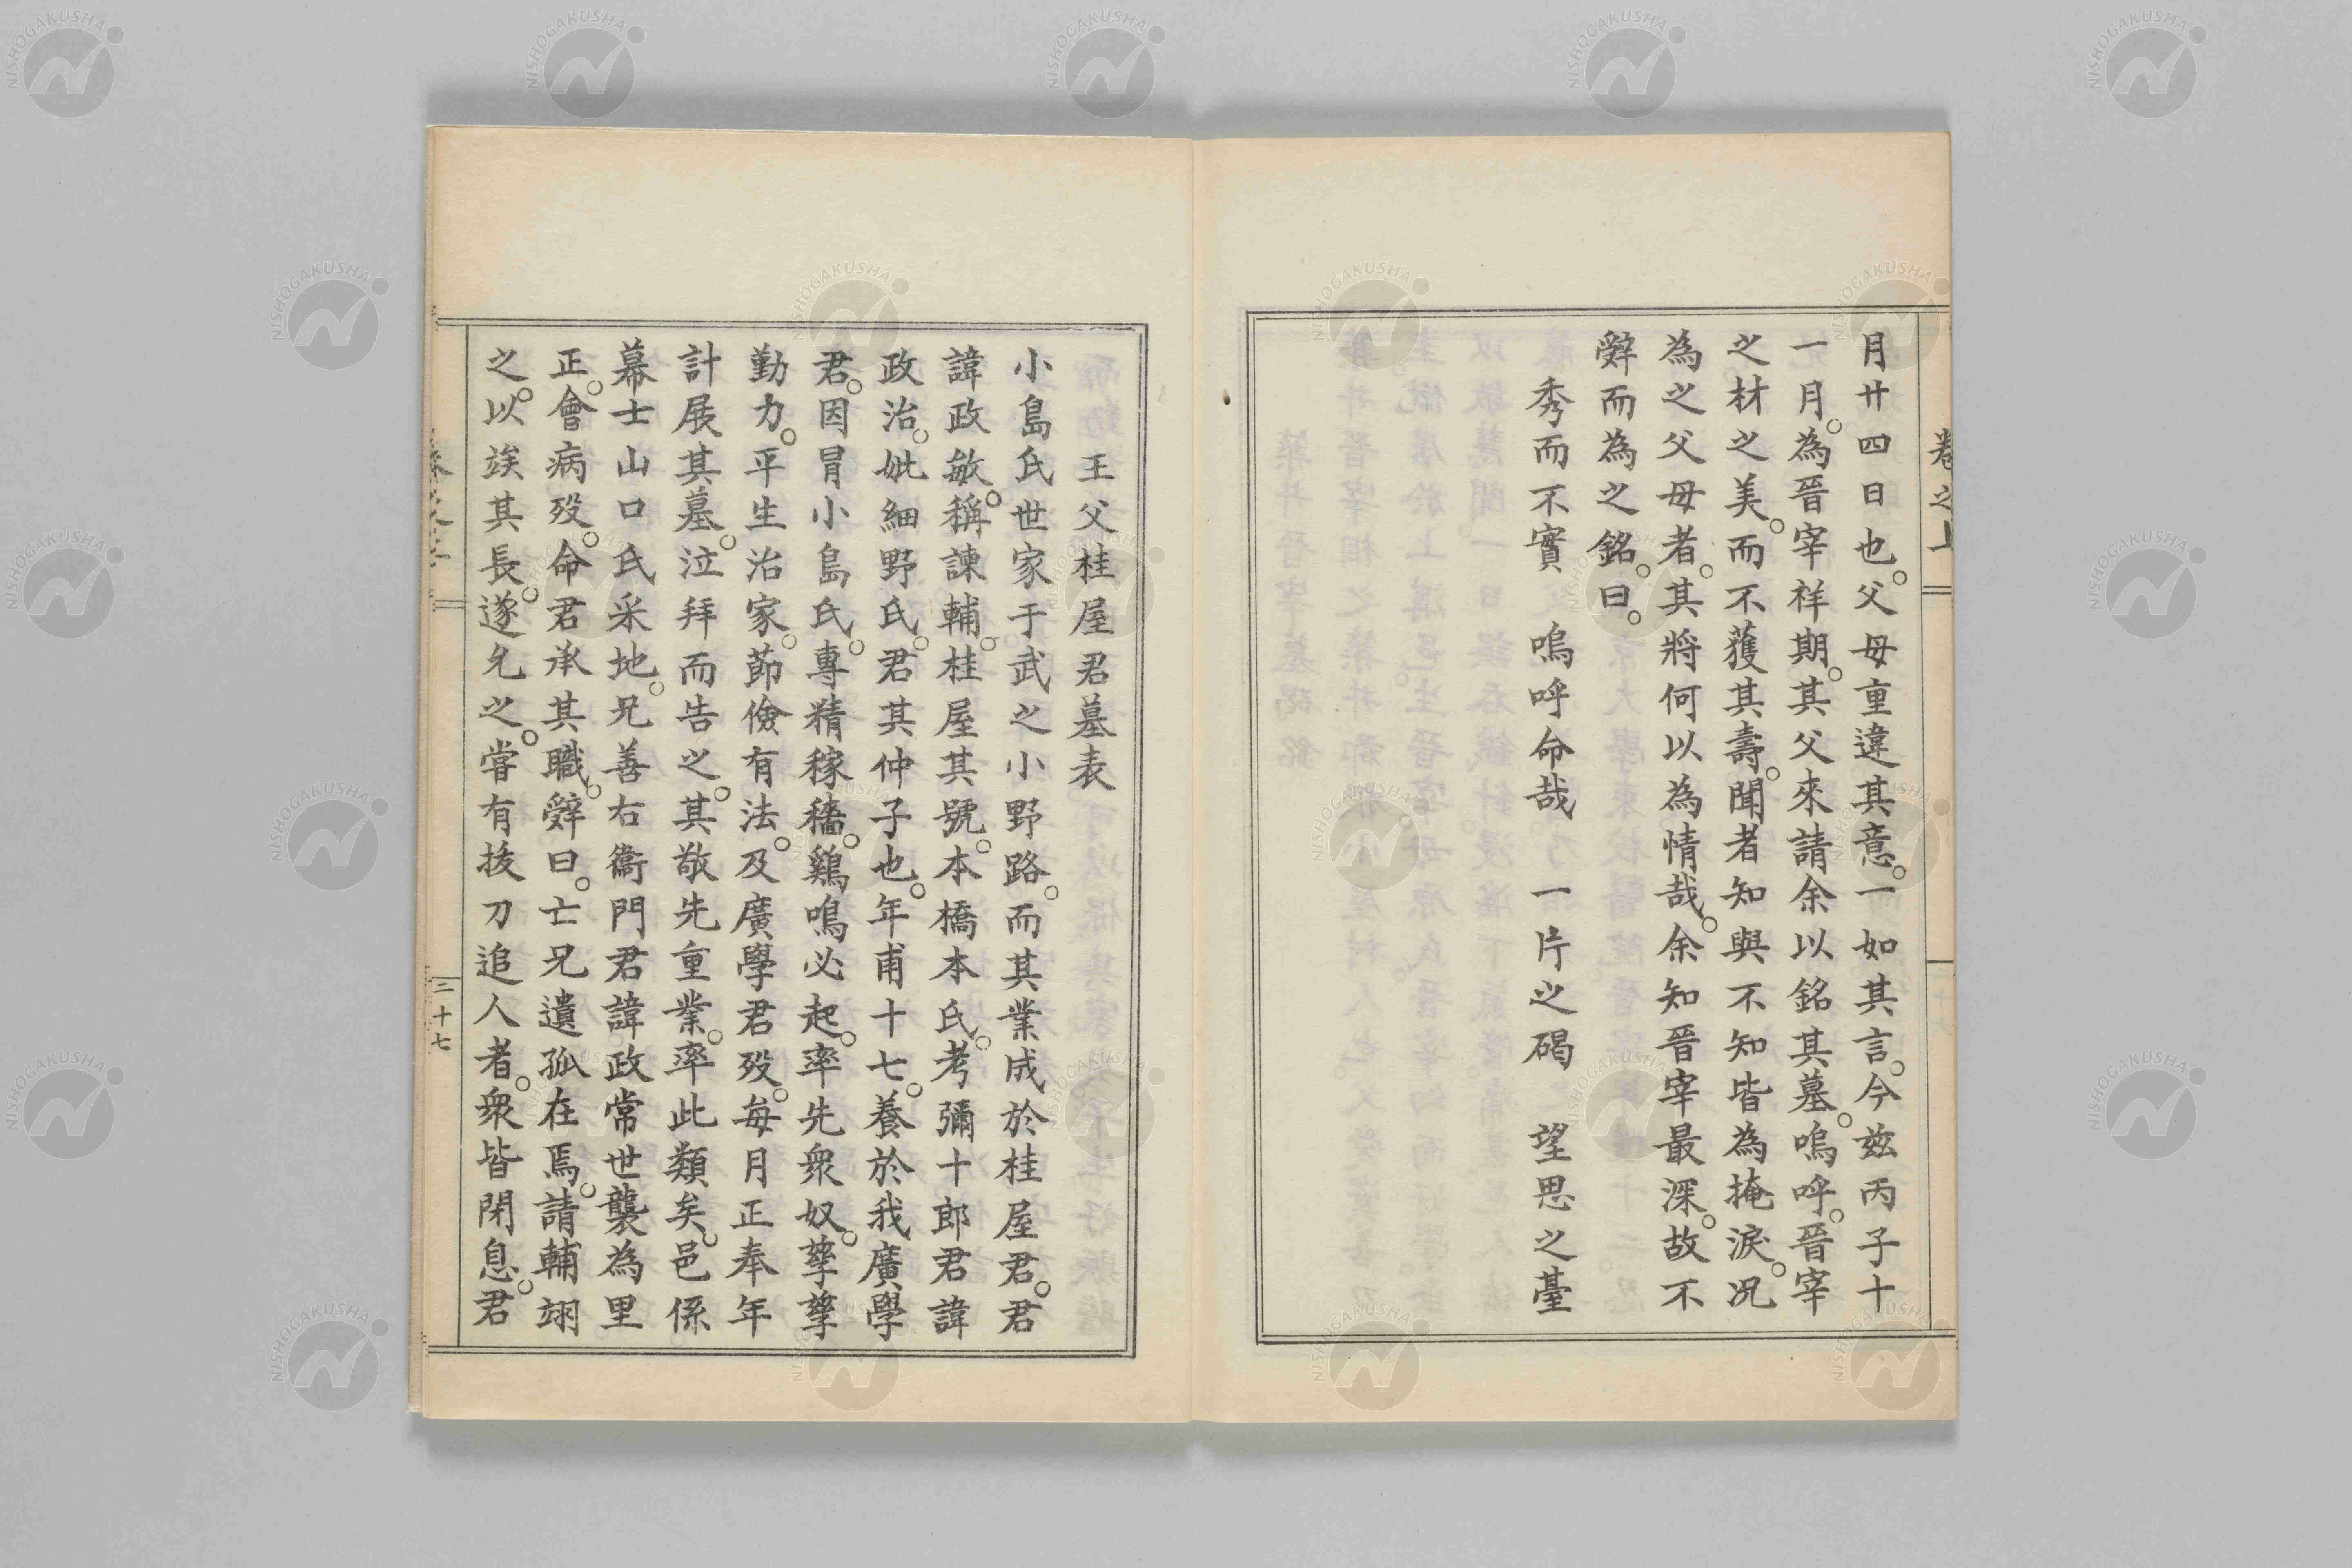 卷之上
月廿四日也。父母重違其意。一如其言。今玆丙子十
一月。為晉宰祥期。其父來請余以銘其墓。嗚呼。晉宰
之材之美。而不獲其壽。聞者知與不知皆為掩淚。况
為之父母者。其將何以為情哉。余知晉宰最深。故不
辭而為之銘。曰。
秀而不實 嗚呼命哉 一片之碣 望思之臺
王父桂屋君墓表
小島氏世家于武之小野路。而其業成於桂屋君。君
諱政敏。稱諫輔。桂屋其號。本橋本氏。考彌十郎君諱
政治。妣細野氏。君其仲子也。年甫十七。養於我廣學
君。因冒小島氏。專精稼穡。鷄鳴必起。率先衆奴。孳孳
勤力。平生治家。節儉有法。及廣學君歿。每月正奉年
計展其墓。泣拜而告之。其敬先重業。率此類矣。邑係
幕士山口氏采地。兄善右衞門君諱政常世襲為里
正。會病歿。命君承其職。辭曰。亡兄遺孤在焉。請輔翊
之。以竢其長。遂允之。嘗有拔刀追人者。衆皆閉息。君
三十七
NISHOGAKUSHA